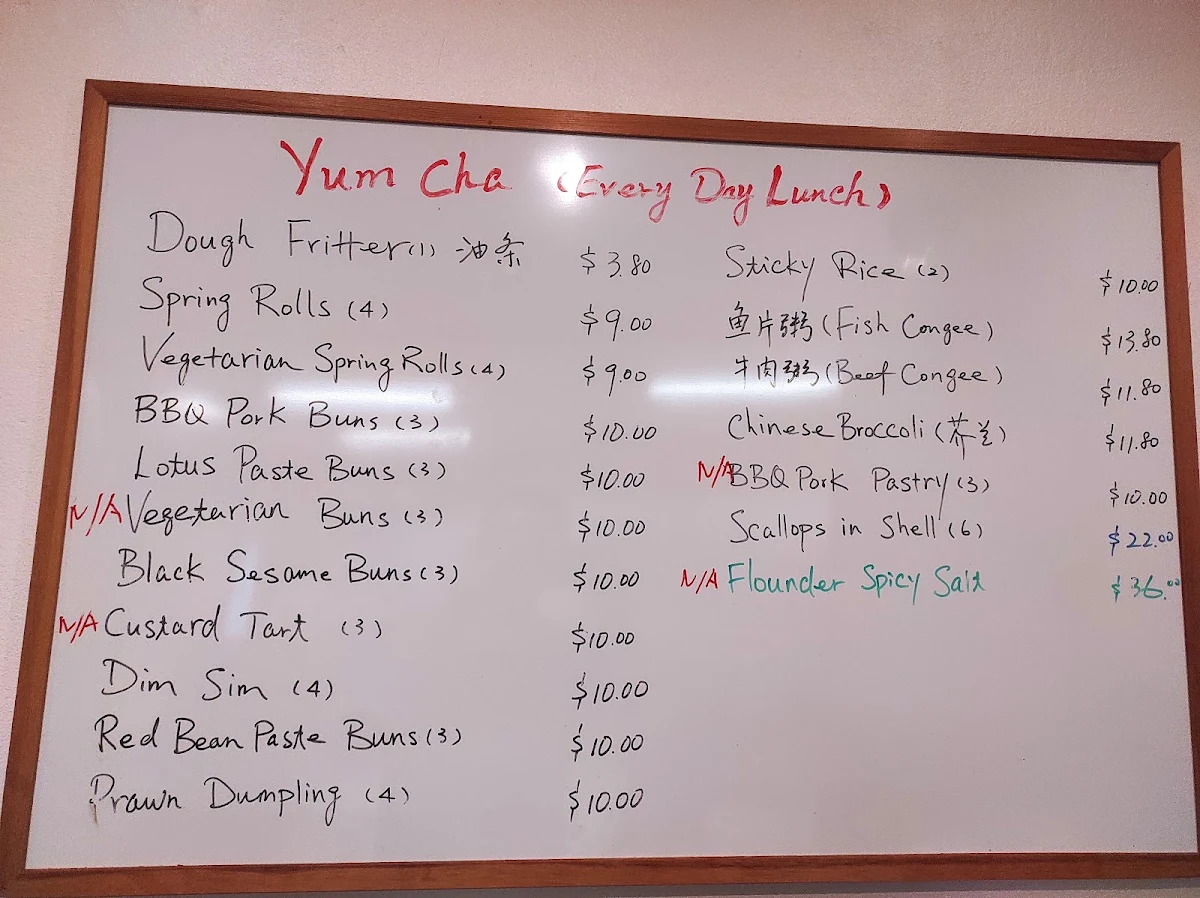 Yum Cha (Every Day Lunch)
Dough Fritter(1) 油条 $3.80
Spring Rolls (4) $9.00
Vegetarian Spring Rolls (4) $9.00
BBQ Pork Buns (3) $10.00
Lotus Paste Buns (3) $10.00
N/A Vegetarian Buns (3) $10.00
Black Sesame Buns (3) $10.00
N/A Custard Tart (3) $10.00
Dim Sim (4) $10.00
Red Bean Paste Buns (3) $10.00
Prawn Dumpling (4) $10.00
Sticky Rice (2) $10.00
鱼片粥 (Fish Congee) $13.80
牛肉粥 (Beef Congee) $11.80
Chinese Broccoli (芥兰) $11.80
N/A BBQ Pork Pastry (3) $10.00
Scallops in Shell (6) $22.00
N/A Flounder Spicy Salt $36.00